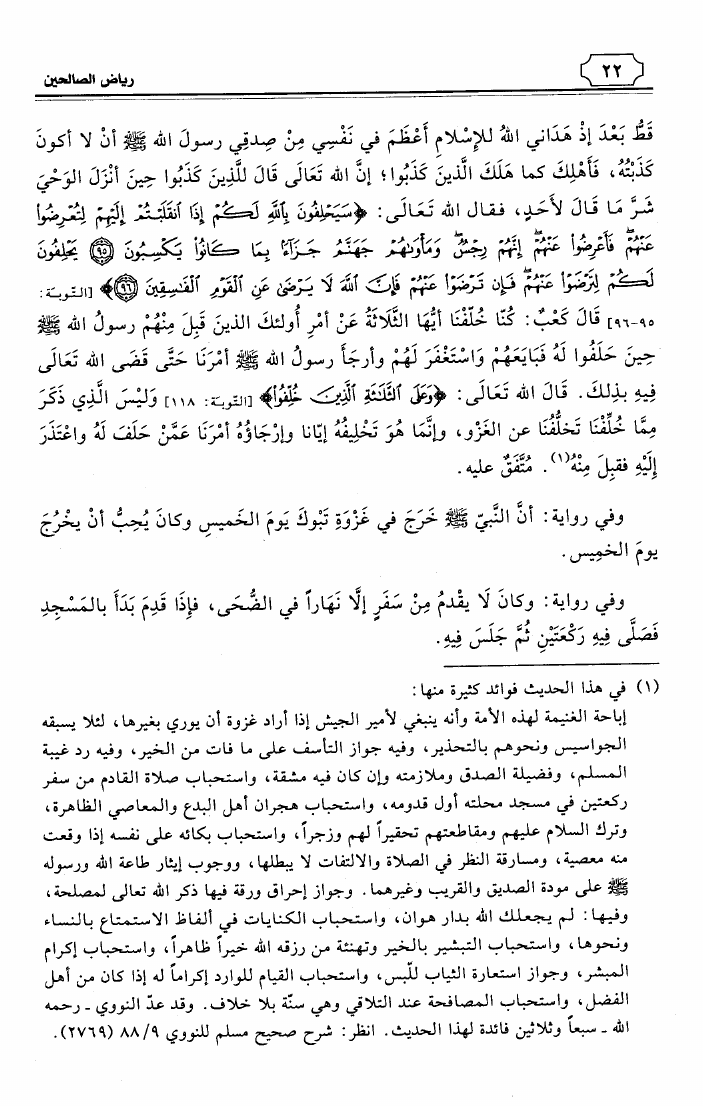 ٢٢
رياض الصالحين
قَطُّ بَعْدَ إذْ هَدَاني اللهُ للإسْلامِ أَعْظَمَ في نَفْسِي مِنْ صِدقِي رسولَ الله ﷺ أنْ لا أكونَ
كَذَبْتُهُ، فَأَهْلِكَ كما هَلَكَ الَّذينَ كَذَبُوا؛ إنَّ الله تَعَالَى قَالَ للَّذِينَ كَذَبُوا حِينَ أنْزَلَ الوَحْيَ
شَرَّ مَا قَالَ لأحَدٍ، فقال الله تَعَالى: ﴿سَيَحْلِفُونَ بِاللَّهِ لَكُمْ إِذَا انقَلَبْتُمْ إِلَيْهِمْ لِتُعْرِضُوا
عَنْهُمْ فَأَعْرِضُوا عَنْهُمْ إِنَّهُمْ رِجْسٌ وَمَأْوَاهُمْ جَهَنَّمُ جَزَاءً بِمَا كَانُوا يَكْسِبُونَ ٩٥ يَحْلِفُونَ
لَكُمْ لِتَرْضَوْا عَنْهُمْ فَإِن تَرْضَوْا عَنْهُمْ فَإِنَّ اللَّهَ لَا يَرْضَى عَنِ الْقَوْمِ الْفَاسِقِينَ ٩٦﴾ [التّوبَة:
٩٥-٩٦] قَالَ كَعْبٌ: كُنّا خُلّفْنَا أيُّهَا الثَّلَاثَةُ عَنْ أمْرِ أُولئكَ الذينَ قَبِلَ مِنْهُمْ رسولُ الله ﷺ
حِينَ حَلَفُوا لَهُ فَبَايَعَهُمْ وَاسْتَغْفَرَ لَهُمْ وأرجَأَ رسولُ الله ﷺ أمْرَنَا حَتَّى قَضَى الله تَعَالَى
فِيهِ بِذلِكَ. قَالَ الله تَعَالَى: ﴿وَعَلَى الثَّلَاثَةِ الَّذِينَ خُلِّفُوا﴾ [التّوبَة: ١١٨] وَلَيْسَ الَّذِي ذَكَرَ
مِمَّا خُلِّفْنَا تَخلُّفُنَا عن الغَزْو، وإنَّمَا هُوَ تَخْلِيفُهُ إيّانا وإرْجَاؤُهُ أمْرَنَا عَمَّنْ حَلَفَ لَهُ واعْتَذَرَ
إِلَيْهِ فقبِلَ مِنْهُ(١). مُتَّفَقٌ عليه.
وفي رواية: أنَّ النَّبيّ ﷺ خَرَجَ في غَزْوَةِ تَبْوكَ يَومَ الخَميسِ وكانَ يُحِبُّ أنْ يخْرُجَ
يومَ الخمِيس.
وفي رواية: وكانَ لَا يقْدمُ مِنْ سَفَرٍ إلَّا نَهَاراً في الضُّحَى، فإِذَا قَدِمَ بَدَأَ بالمَسْجِدِ
فَصَلَّى فِيهِ رَكْعَتَيْنِ ثُمَّ جَلَسَ فِيهِ.
(١) في هذا الحديث فوائد كثيرة منها:
إباحة الغنيمة لهذه الأمة وأنه ينبغي لأمير الجيش إذا أراد غزوة أن يوري بغيرها، لئلا يسبقه
الجواسيس ونحوهم بالتحذير، وفيه جواز التأسف على ما فات من الخير، وفيه رد غيبة
المسلم، وفضيلة الصدق وملازمته وإن كان فيه مشقة، واستحباب صلاة القادم من سفر
ركعتين في مسجد محلته أول قدومه، واستحباب هجران أهل البدع والمعاصي الظاهرة،
وترك السلام عليهم ومقاطعتهم تحقيراً لهم وزجراً، واستحباب بكائه على نفسه إذا وقعت
منه معصية، ومسارقة النظر في الصلاة والالتفات لا يبطلها، ووجوب إيثار طاعة الله ورسوله
ﷺ على مودة الصديق والقريب وغيرهما. وجواز إحراق ورقة فيها ذكر الله تعالى لمصلحة،
وفيها: لم يجعلك الله بدار هوان، واستحباب الكنايات في ألفاظ الاستمتاع بالنساء
ونحوها، واستحباب التبشير بالخير وتهنئة من رزقه الله خيراً ظاهراً، واستحباب إكرام
المبشر، وجواز استعارة الثياب للّبس، واستحباب القيام للوارد إكراماً له إذا كان من أهل
الفضل، واستحباب المصافحة عند التلاقي وهي سنّة بلا خلاف. وقد عدّ النووي ـ رحمه
الله ـ سبعاً وثلاثين فائدة لهذا الحديث. انظر: شرح صحيح مسلم للنووي ٨٨/٩ (٢٧٦٩).